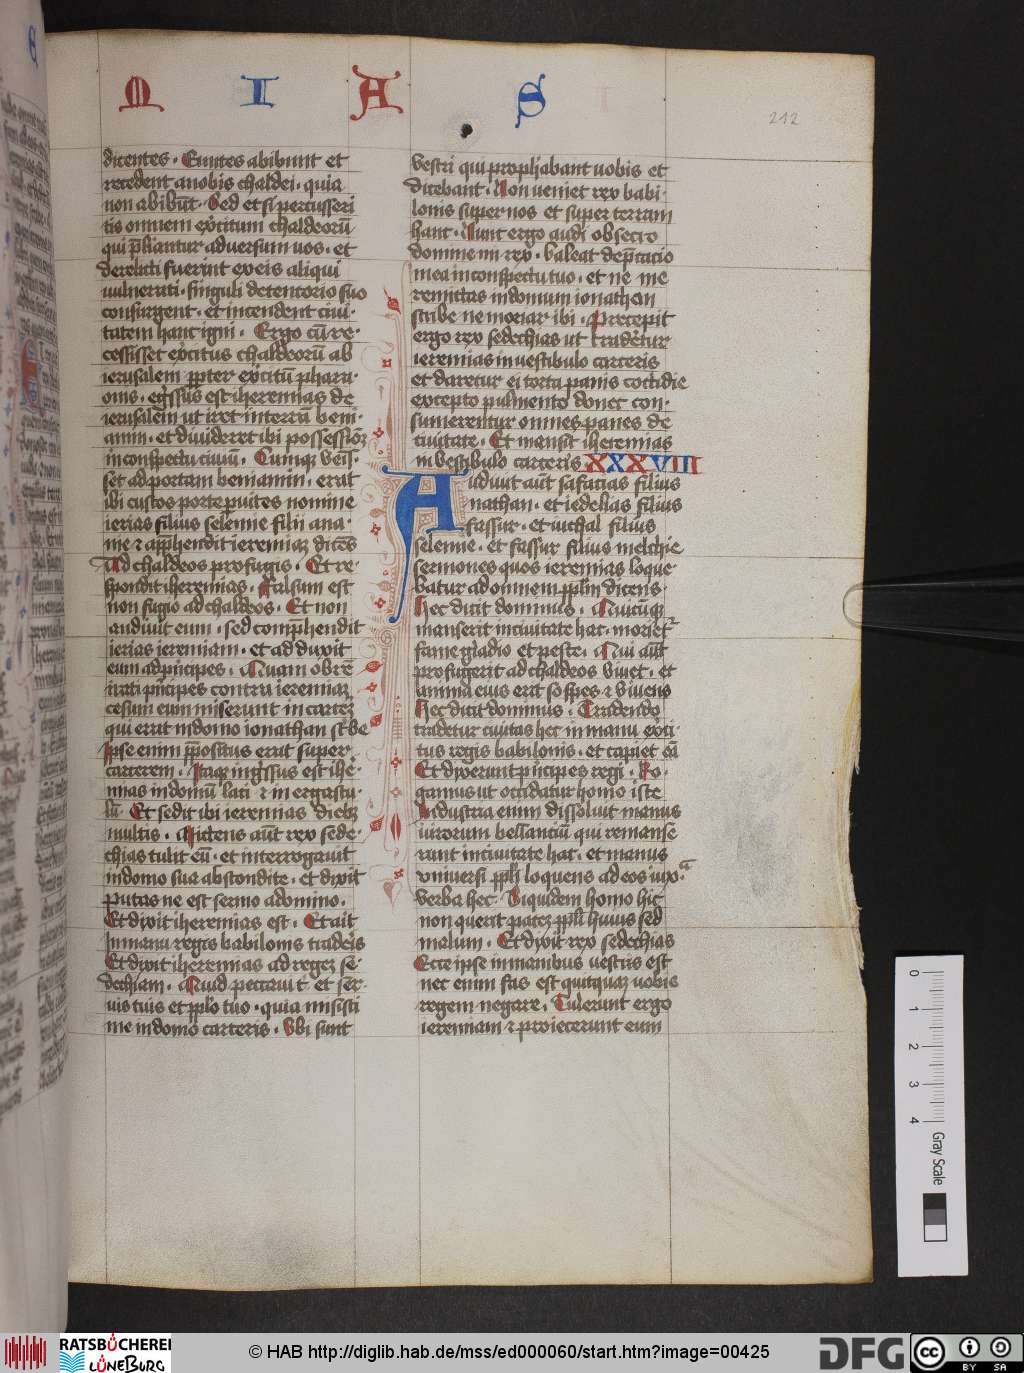 M I A S
212
dicentes. Euntes abibunt et
recedent anobis chaldei. quia
non abibūt. Sed et si percusseri
tis omnem exͬcitum chaldeorū
qui p̄liantur adversum uos. et
derelicti fuerint exeis aliqui
uulnerati. singuli detentorio suo
consurgent. et incendent ciui.
tatem hanc igni. Ergo cū re.
cessisset exͬcitus chaldeorū ab
ierusalem ꝓpter exͬcitū phara.
onis. egͬssus est iheremias de
ierusalem ut iret interrā beni.
amin. et diuideret ibi possessiōꝫ
inconspectu ciuiū. Cumqꝫ veis.
set adportam beniamin. erat
ibi custos porte ꝑuices nomine
ierias filius selemie filii ana.
nie ⁊ app̄hendit ieremiaꝫ dicēs
Ad chaldeos profugis. Et re.
spondit iheremias. Falsum est
non fugio ad chaldeos. Et non
audiuit eum. sed comp̄hendit
ierias ieremiam. et adduxit
eum adpͥncipes. Quam ob rē
irati pͥncipes contra ieremiaꝫ
cesum eum miserunt in carceꝫ
qui erat indomo ionathan scͥbe
Ipse enim p̄positus erat super
carcerem. Itaqꝫ ingͬssus est ihe.
mias indomū laci ⁊ in ergastu.
lū. Et sedit ibi ieremias diebꝫ
multis. Mittens aūt rex sede.
chias tulit eū. et interrogauit
indomo sua abscondite. et dixit
Putas ne est sermo adomino.
Et dixit iheremias est. Et ait
Inmanu regis babilonis tradeͬis
Et dixit iheremias ad regeꝫ se.
dechiam. Quid peccaui t̄ et ser.
uis tuis et pplo tuo. quia misisti
me indomō carceris. Vbi sunt
vestri qui prophabant uobis et
dicebant. Non ueniet rex babi.
lonis super nos et super terram
hanc. Nunc ergo audi obsecro
domine mi rex. valeat dep̄catio
mea inconspectu tuo. et ne me
remittas indomum ionathan
scribe ne moriar ibi. Precepit
ergo rex sedechias ut traderetur
ieremias in uestibulo carceris
et daretur ei torta panis cottidie
excepto pulmento donec con.
sumerentur omnes panes de
ciuitate. Et mansit iheremias
in vestibulo carceris XXXVIII
Audiuit aūt safacias filius
nathan. et iedelias filius
fassur. et iuchal filius
selemie. et fassur filius melchie
sermones quos ieremias loque.
batur ad omnem pplm dicens.
Hec dicit dominus. Quicūqꝫ
manserit inciuitate hac. morietͬ
fame gladio et peste. Qui aūt
profugerit ad chaldeos viuet. et
anima eius erit sospes ⁊ viuens
Hec dicit dominus. Tradendo
tradetur ciuitas hec in manu exci
tus regis babilonis. et capiet eā
Et dixerunt pͥncipes regi. Ro.
gamus ut occidatur homo iste
Industria enim dissoluit manus
uirorum bellanciū qui remanse
runt inciuitate hac. et manus
vniuersi ppli loquens ad eos iux.ᵃ
verba hec. Siquidem homo hic
non querit paceꝫ pplo huius sed
malum. Et dixit rex sedechias
Ecce ipse inmanibus uestris est
nec enim fas est quitquaꝫ uobis
regem negare. Tulerunt ergo
ieremiam ⁊ proiecerunt eum
0 1 2 3 4 Gray Scale
RATSBÜCHEREI
LÜNEBURG
© HAB http://diglib.hab.de/mss/ed000060/start.htm?image=00425
DFG
cc BY SA